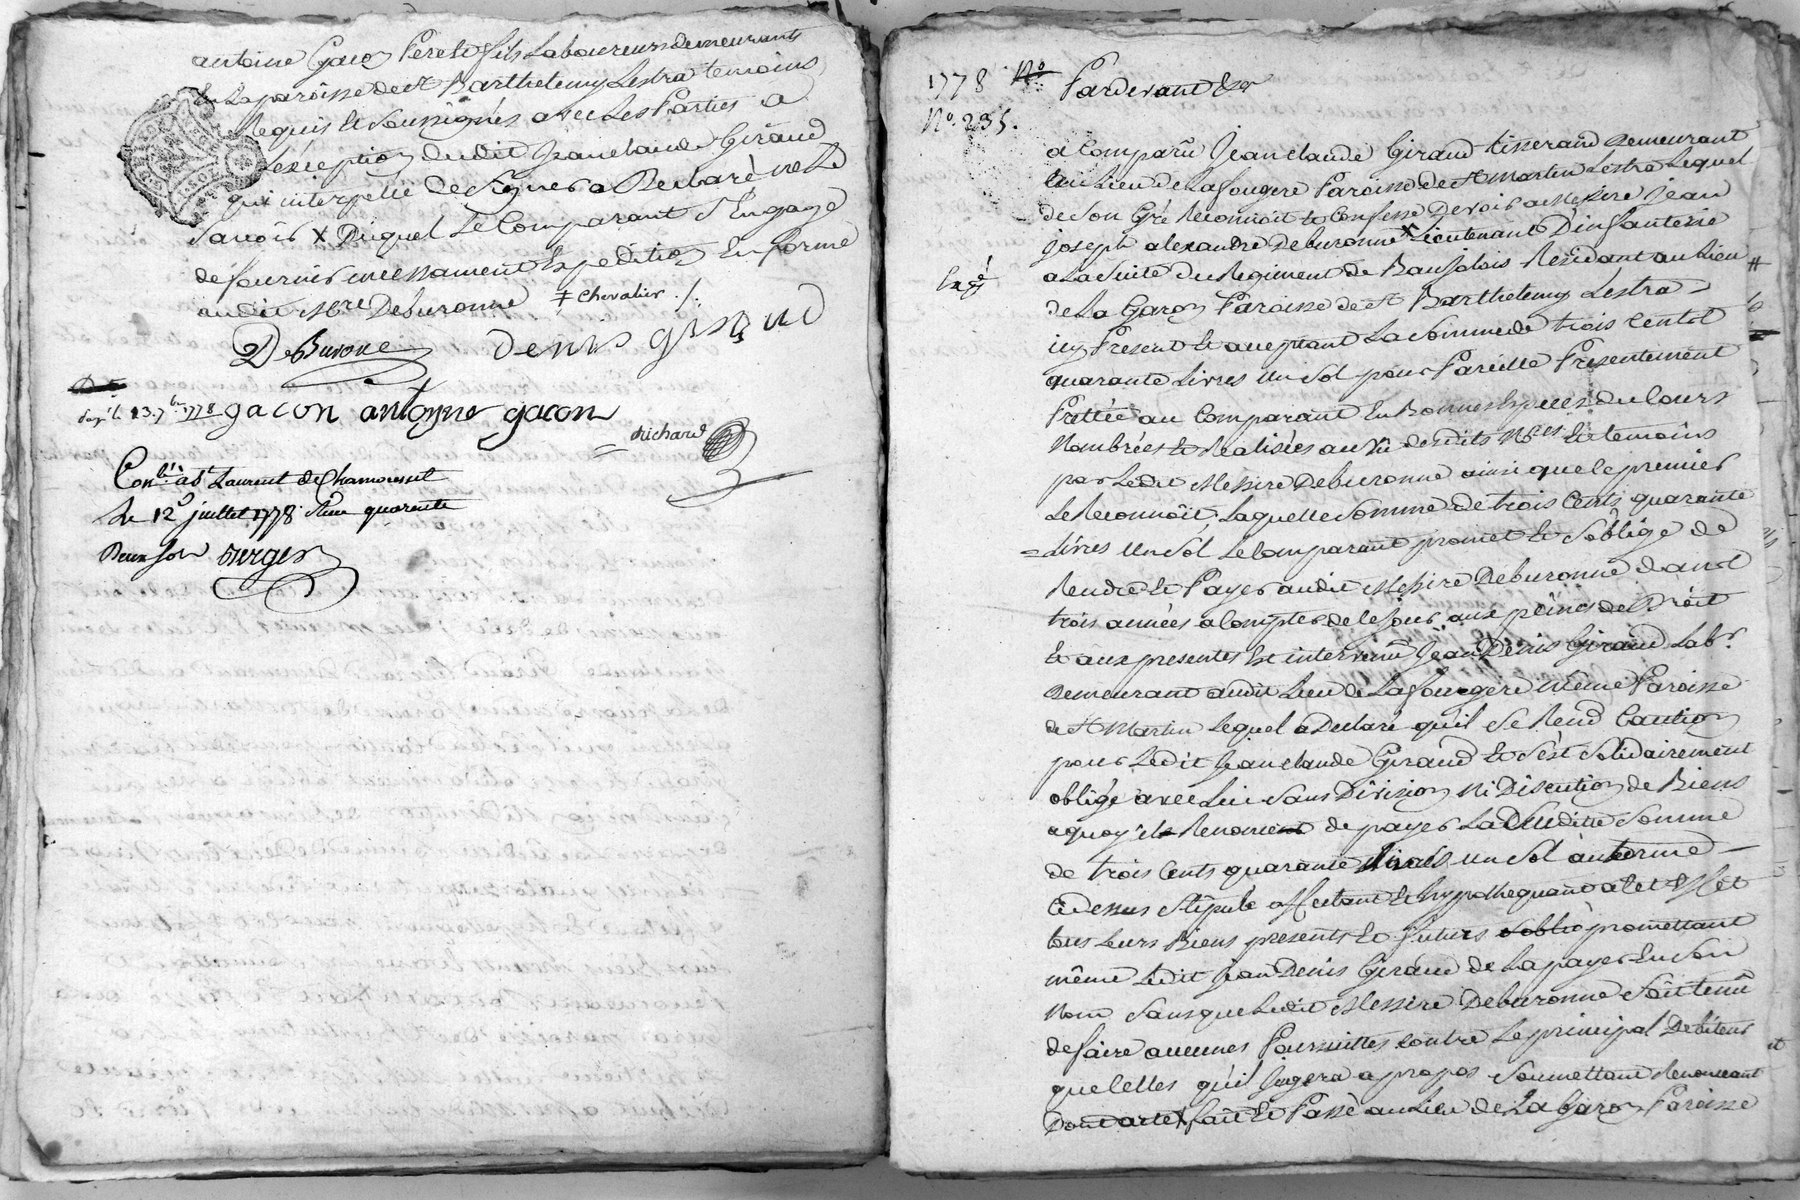 antoine Gacon Pere et fils Laboureurs demeurants
En La paroisse de St Barthelemy Lestra temoins
Requis Et Soussignés avec Les Parties a
L'exception dudit Jean claude Giraud
qui interpellé de Signer a Declaré ne Le
Savoir X Duquel Le Comparant S'Engage
de fournir incessament Expedition En forme
audit Mre Deburonne ‡ chevalier ./.
DeBurone denis giraud
gacon antoyne gacon
Richard
Conlé à St Laurent de Chamousset
Le 12 juillet 1778 Reçu quarente
Deux sols Berger
1778 No
No. 235.
Pardevant &er
a Comparû Jean claude Giraud tisserand Demeurant
au Lieu de La fougere Paroisse de St Martin Lestra Lequel
de Son Gré Reconnoit et Confesse Devoir a Messire Jean
joseph alexandre Deburonne X Lieutenant D'infanterie
a La Suite du Regiment de Baujolois Residant au Lieu
Exgé
de La Garon Paroisse de St Barthelemy Lestra
icy Present Et acceptant La Somme de trois Cents
quarante Livres Un Sol pour Pareille Presentement
Prettée au Comparant En Bonnes Especes du Cours
Nombrées Et Realisées au Vû desdits Nres Et temoins
par Ledit Messire Deburonne ainsi que le premier
Le Reconnoit, Laquelle Somme de trois Cents quarante
Livres Un Sol Le Comparant promet Et S'oblige de
Rendre Et Payer audit Messire Deburonne dans
trois années a Compter de Ce Jour aux peines de Droit
Et aux presentes Est intervenû Jean Denis Giraud Labr.
Demeurant audit Lieu de La fougere même Paroisse
de St Martin Lequel a Declaré qu'il Se Rend Caution
pour Ledit Jean claude Giraud Et S'est Solidairement
obligé avec Lui Sans Division Ni Discution de Biens
a quoy il Renonce de payer La Susditte Somme
de trois Cents quarante Livres un Sol au terme
Ci dessus Stipulé affectant Et hypothequant a Cet Effet
tous Leurs Biens presents Et futurs promettant
même Ledit Jean Denis Giraud de La payer En Son
Nom Sans que Ledit Messire Deburonne Soit tenû
de faire aucunes Poursuittes contre Le principal Debiteur
que Celles qu'il Jugera a propos Soumettant Renonceant
Dont acte fait Et Passé au Lieu de La Garon Paroisse